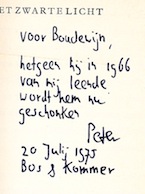 ET ZWARTE LICHT
voor Boudewijn,
hetgeen hij in 1966
van mij leende
wordt hem nu
geschonken
Peter
20 Julij 1975
Bos & Kommer